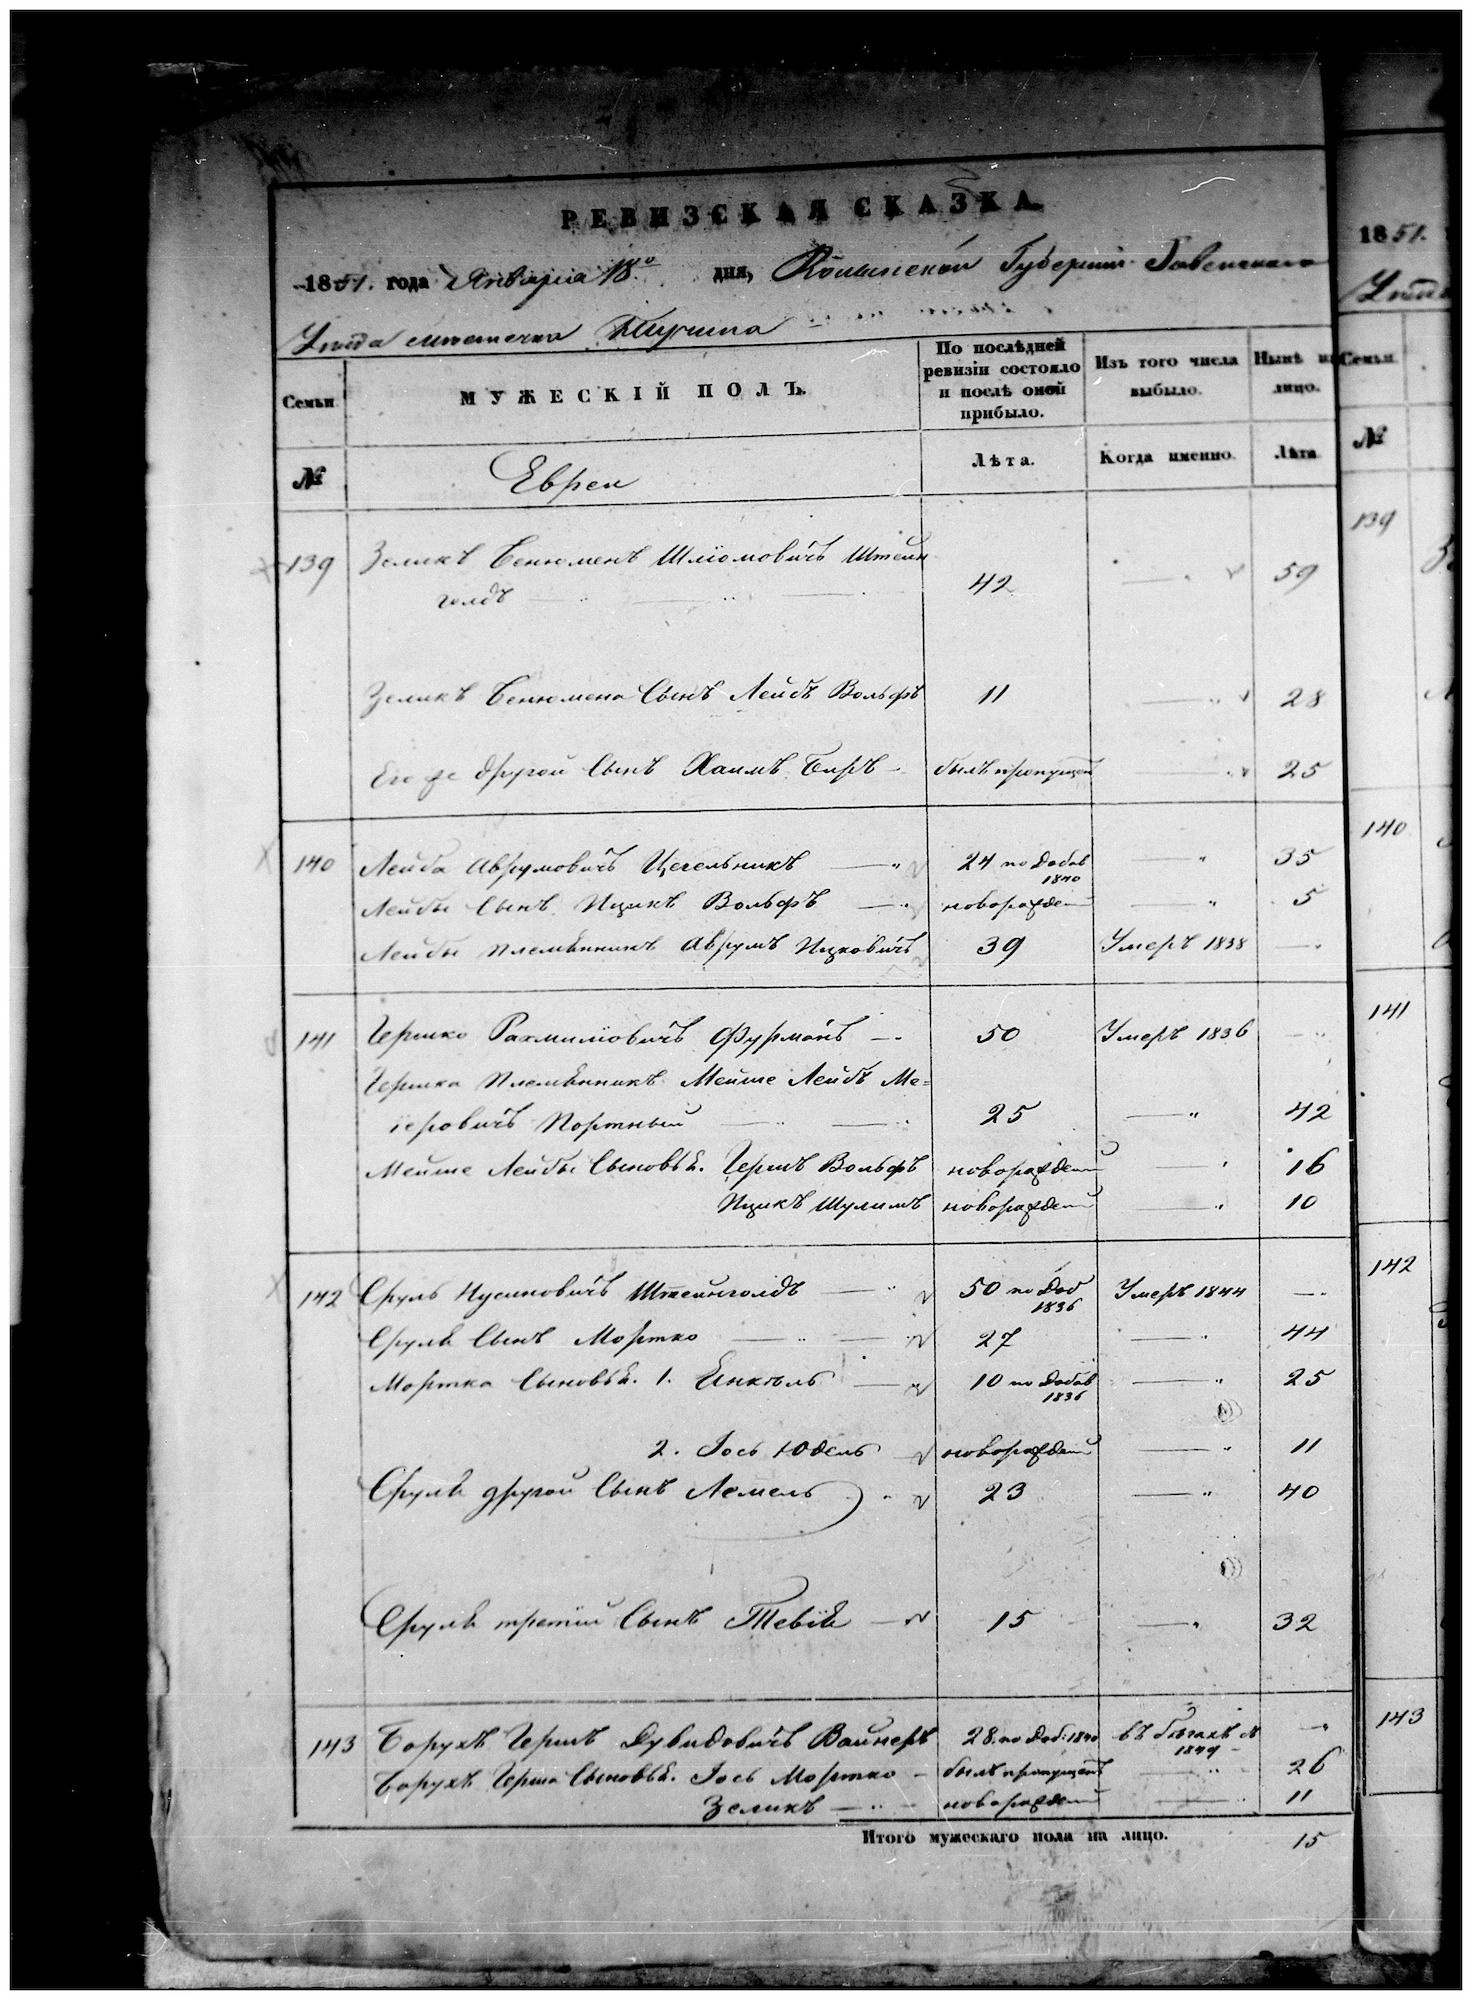 РЕВИЗСКАЯ СКАЗКА
1851. года Января 18го дня, Волынской Губернии Ровенскаго
Уѣзда мѣстечка Тучина
Семьи МУЖЕСКІЙ ПОЛЪ. По послѣдней ревизіи состояло и послѣ оной прибыло. Изъ того числа выбыло. Нынѣ на лицо.
№ Евреи Лѣта. Когда именно. Лѣта
139 Зеликъ Бенюменъ Шліомовичъ Штейн
голдъ 42 — " 59
Зеликъ Бенюмена Сынъ Лейбъ Вольфъ 11 — " 28
Его же другой Сынъ Хаимъ Беръ — былъ пропущен — " 25
140 Лейба Аврумовичъ Цегельникъ — " 24 по добав 1840 " 35
Лейбы Сынъ Ицикъ Вольфъ — " новорожден — " 5
Лейбы племѣнникъ Аврумъ Ицковичъ 39 Умеръ 1838 — "
141 Гершко Рахмиліовичъ Фурманъ — 50 Умеръ 1836 — "
Гершка Племѣнникъ Мейше Лейбъ Ме=
іеровичъ Портный — " — " 25 — " 42
Мейше Лейбы Сыновья. Гершъ Вольфъ новорожден — " 16
Ицикъ Шулимъ новорожден — " 10
142 Сруль Нусиновичъ Штейнголдъ — " 50 по доб 1836 Умеръ 1844 — "
Сруля Сынъ Мортко — " — " 27 — " 44
Мортка Сыновья. 1. Янкель — 10 по добав 1836 — " 25
2. Іось Юдель новорожден — " 11
Сруля другой Сынъ Лемель " 23 — " 40
Сруля третій Сынъ Тевія — 15 — " 32
143 Борухъ Гершъ Дувидовичъ Вайнеръ 28. по доб: 1840 въ бѣгахъ съ 1849 — "
Борухъ Герша Сыновья. Іось Мортко — былъ пропущен — " 26
Зеликъ — " — новорожден — " 11
Итого мужескаго пола на лицо. 15
1851.
Уѣзда
Семьи
№
139
140
141
142
143